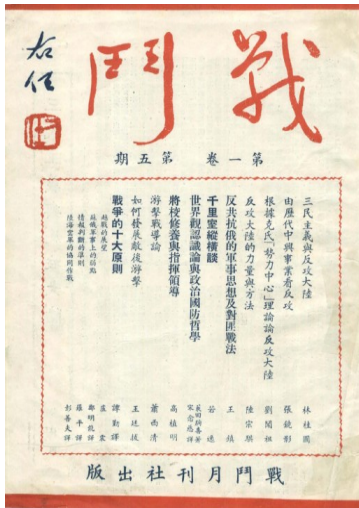 戰鬥
右任
第一卷 第五期
三民主義與反攻大陸 林桂圃
由歷代中興事業看反攻 張鏡影
根據克氏「勢力中心」理論論反攻大陸
反攻大陸的力量與方法 陸宗騏
反共抗俄的軍事思想及對匪戰法 王
千里室縱橫談 若
世界觀認識論與政治國防哲學 宋念慈譯
將校修養與指揮領導 高植明
游擊戰導論 蕭西清
如何發展敵後游擊 王
戰爭的十大原則 譚勤譯
越戰的展望 孟
蘇俄軍事上的弱點 鄭明
情報判斷的準則 羅平譯
陸海空軍的協同作戰 彭善夫譯
戰鬥月刊社出版